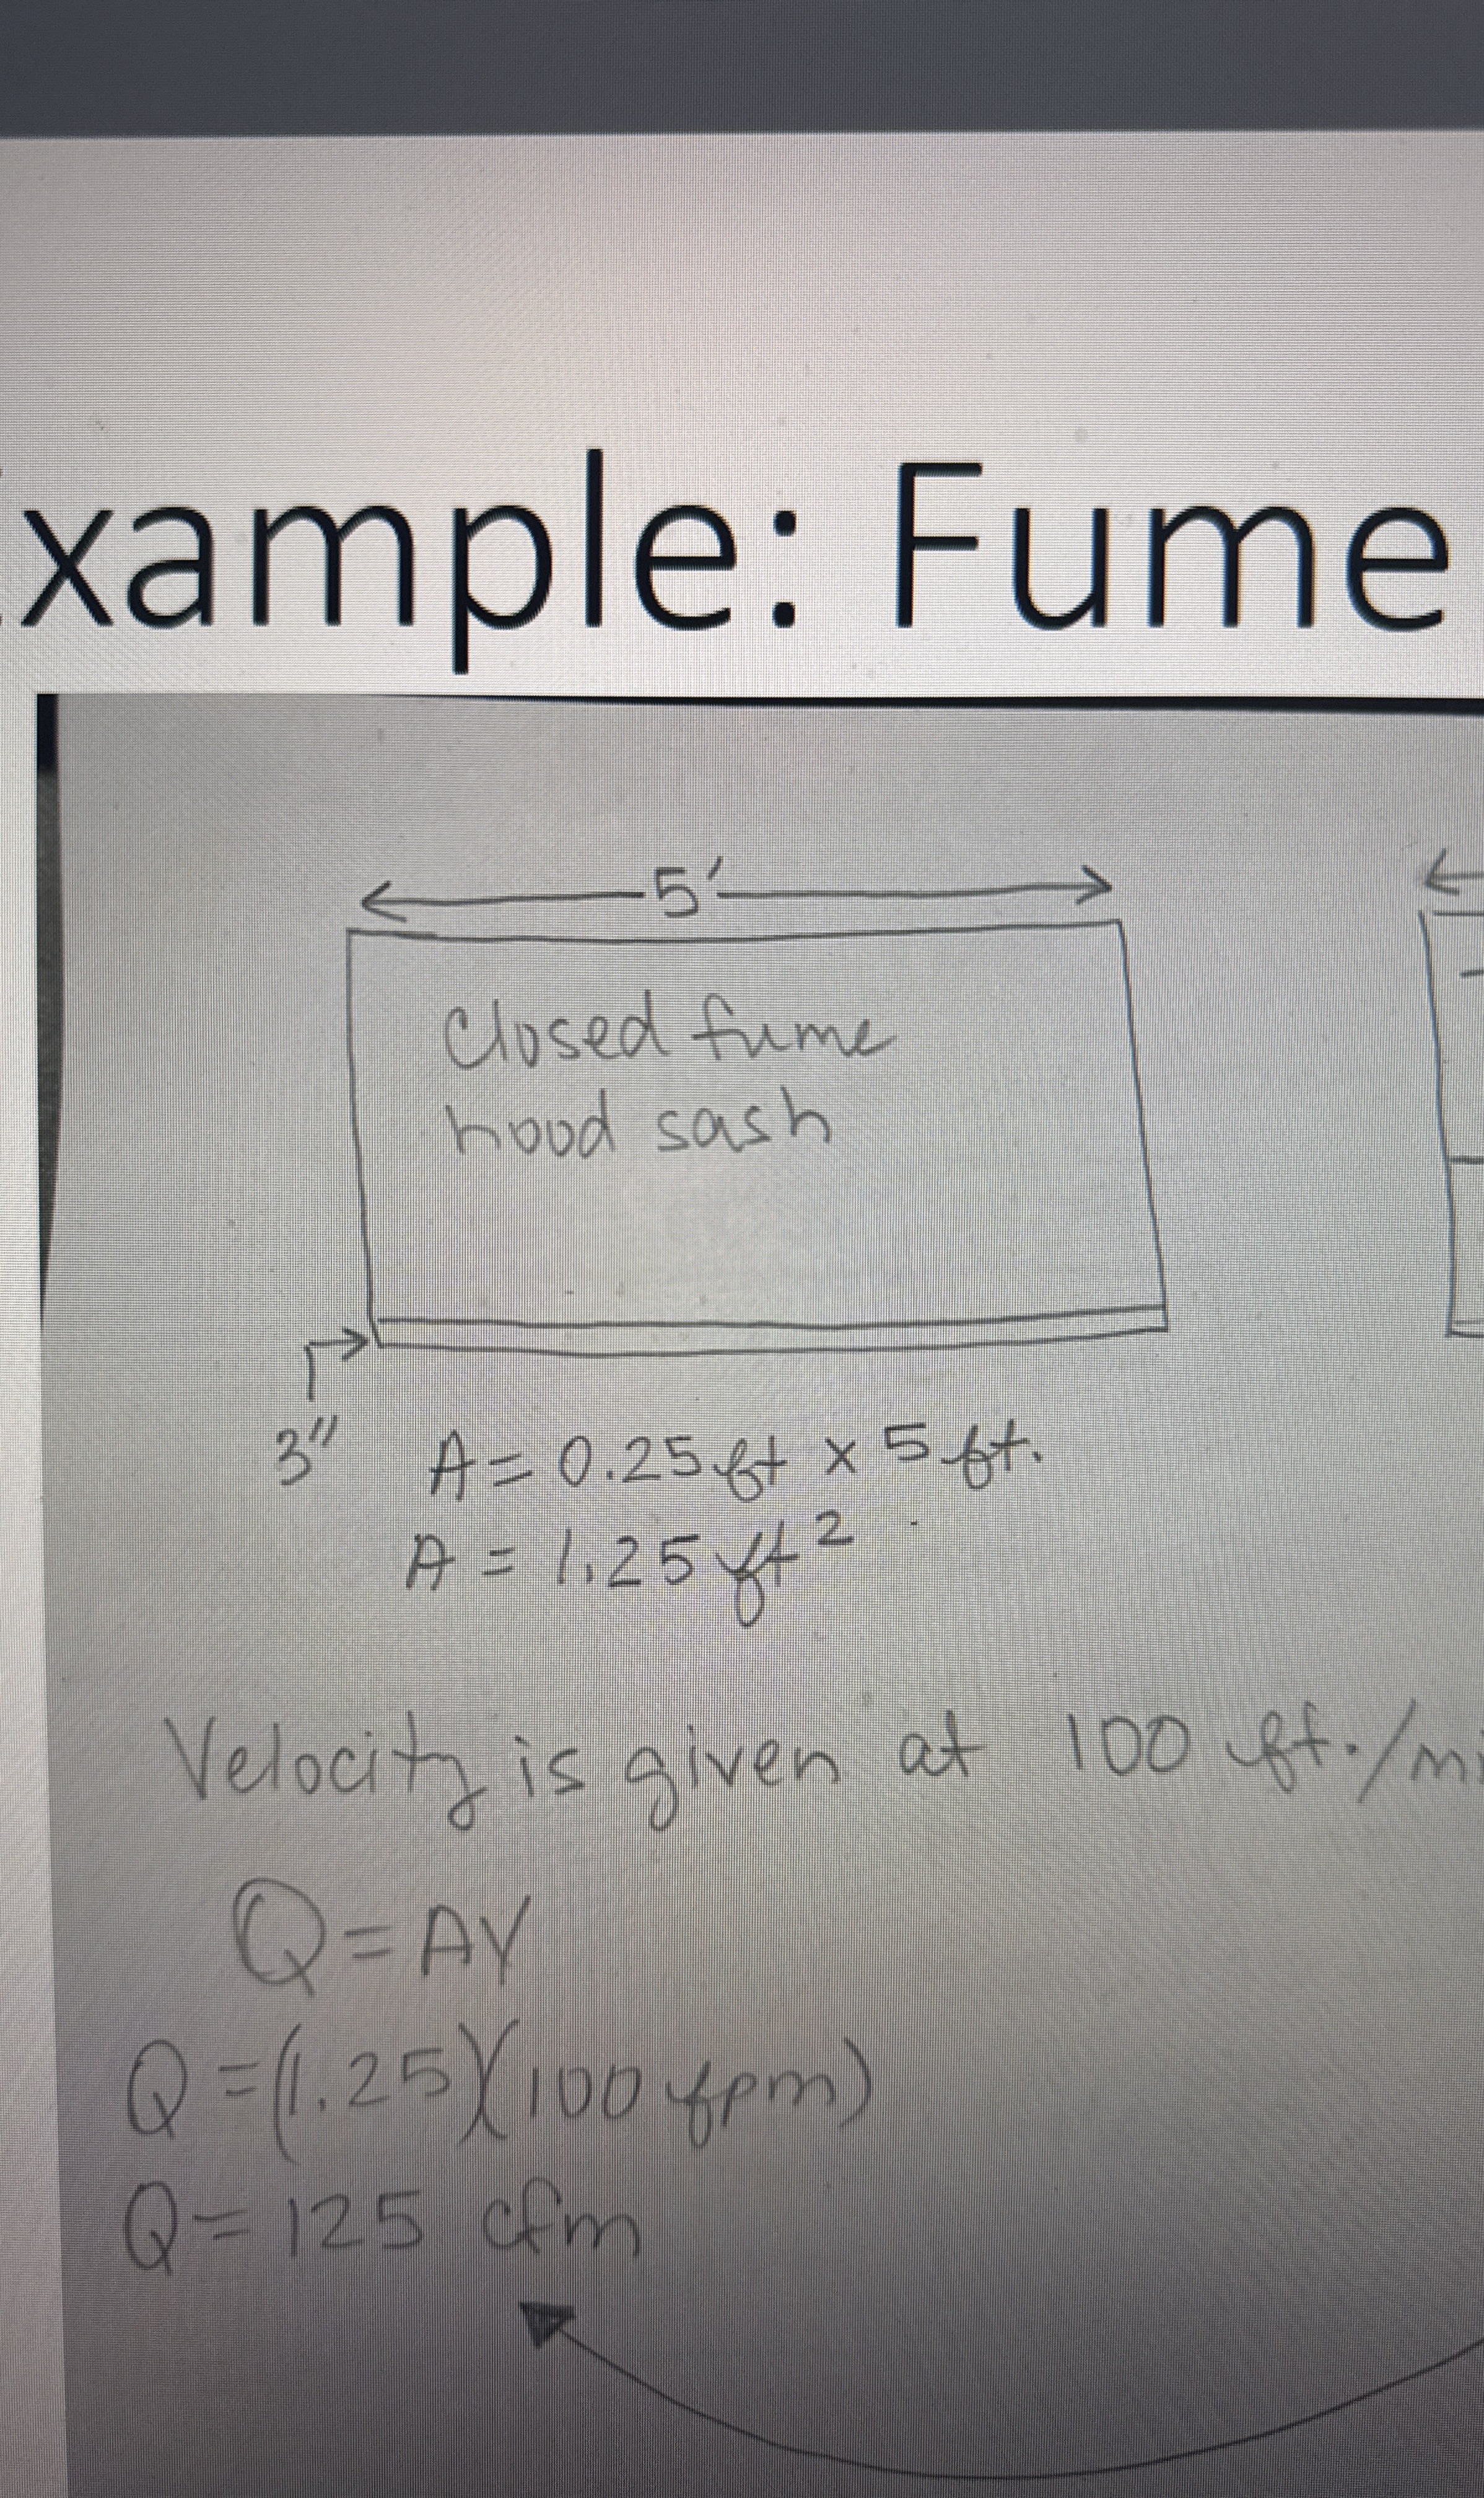 xample: Fume
5'
Closed fume
hood sash
3"
A = 0.25 ft x 5 ft.
A = 1.25 ft²
Velocity is given at 100 ft./mi
Q = AV
Q = (1.25)(100 fpm)
Q = 125 cfm